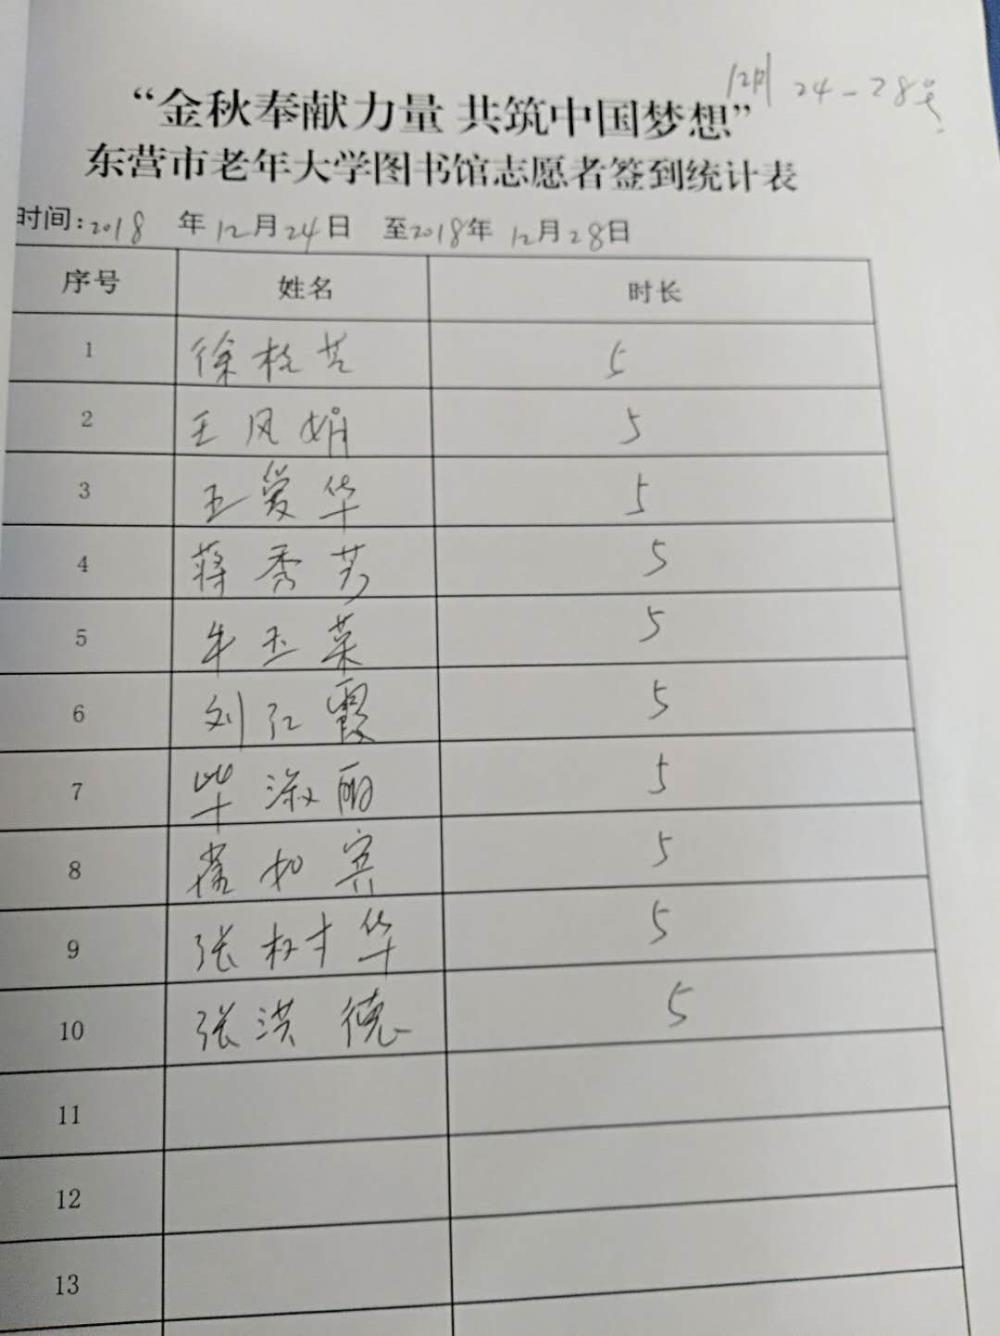 12月24-28号
“金秋奉献力量 共筑中国梦想”
东营市老年大学图书馆志愿者签到统计表
时间:2018 年12月24日 至2018年12月28日
序号 姓名 时长
1 徐桂芝 5
2 王凤娟 5
3 王爱华 5
4 蒋秀芳 5
5 牛玉菜 5
6 刘红霞 5
7 毕淑丽 5
8 崔如宾 5
9 张树华 5
10 张洪德 5
11
12
13